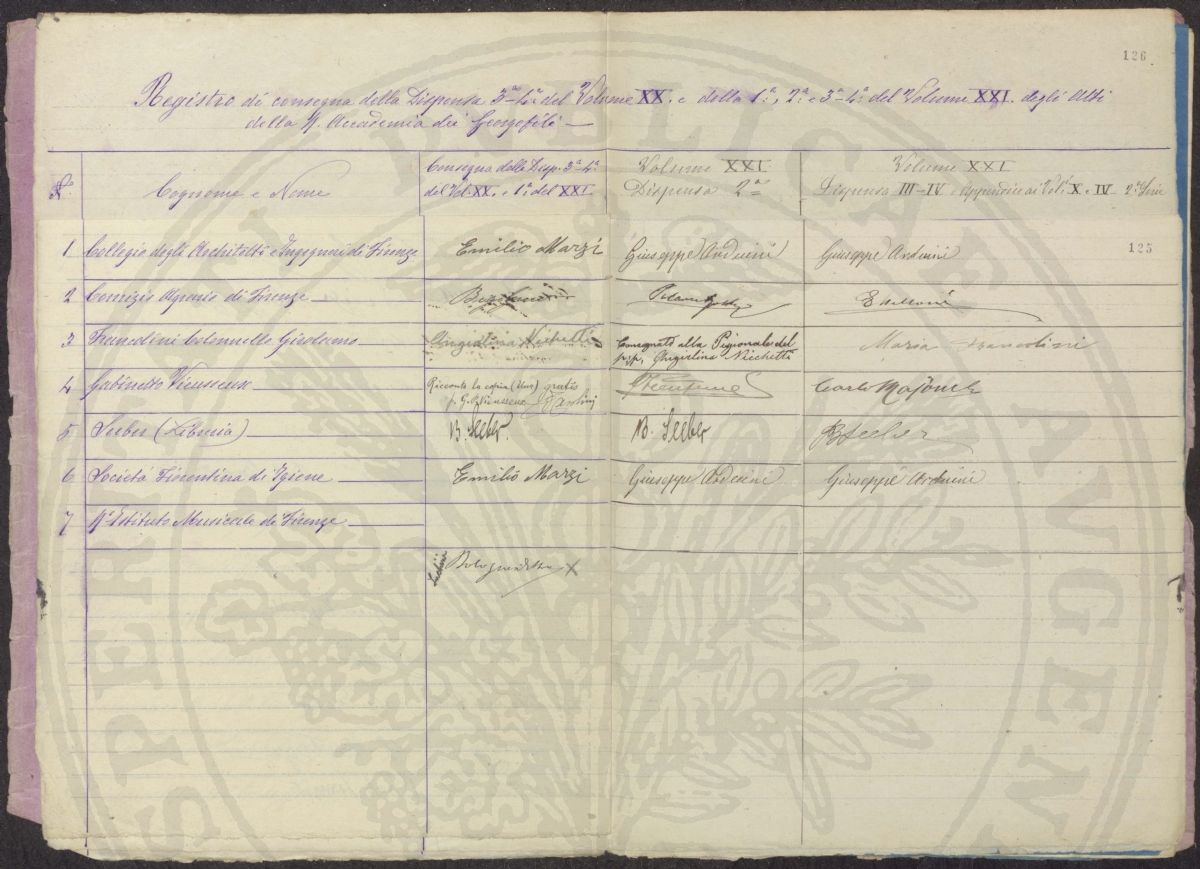 126
Registro di consegna della Dispensa 3ª-4ª del Volume XX. e della 1ª, 2ª e 3ª-4ª del Volume XXI. degli Atti
della R. Accademia dei Georgofili
N.º
Cognome e Nome
Consegna delle Disp. 3ª-4ª
del Vol. XX. e 1ª del XXI.
Volume XXI
Dispensa 2ª
Volume XXI
Dispensa III-IV e Appendice ai Vol. X e IV 2ª Serie
125
1 Collegio degli Architetti e Ingegneri di Firenze Emilio Marzi Giuseppe Arduini Giuseppe Arduini
2 Comizio Agrario di Firenze
3 Francolini Colonnello Girolamo Angiolina Nichetti Consegnato alla Pigionale del Maria Francolini
p.p. Angiolina Nicchetti
4 Gabinetto Vieusseux Ricevuto la copia (Una) gratis Carlo
p. G. P. Vieusseux
5 Seeber (Libreria) B. Seeber. B. Seeber B Seeber
6 Società Fiorentina di Igiene Emilio Marzi Giuseppe Arduini Giuseppe Arduini
7 R. Istituto Musicale di Firenze
X
SPERITAS PUBLICAE AVGEN